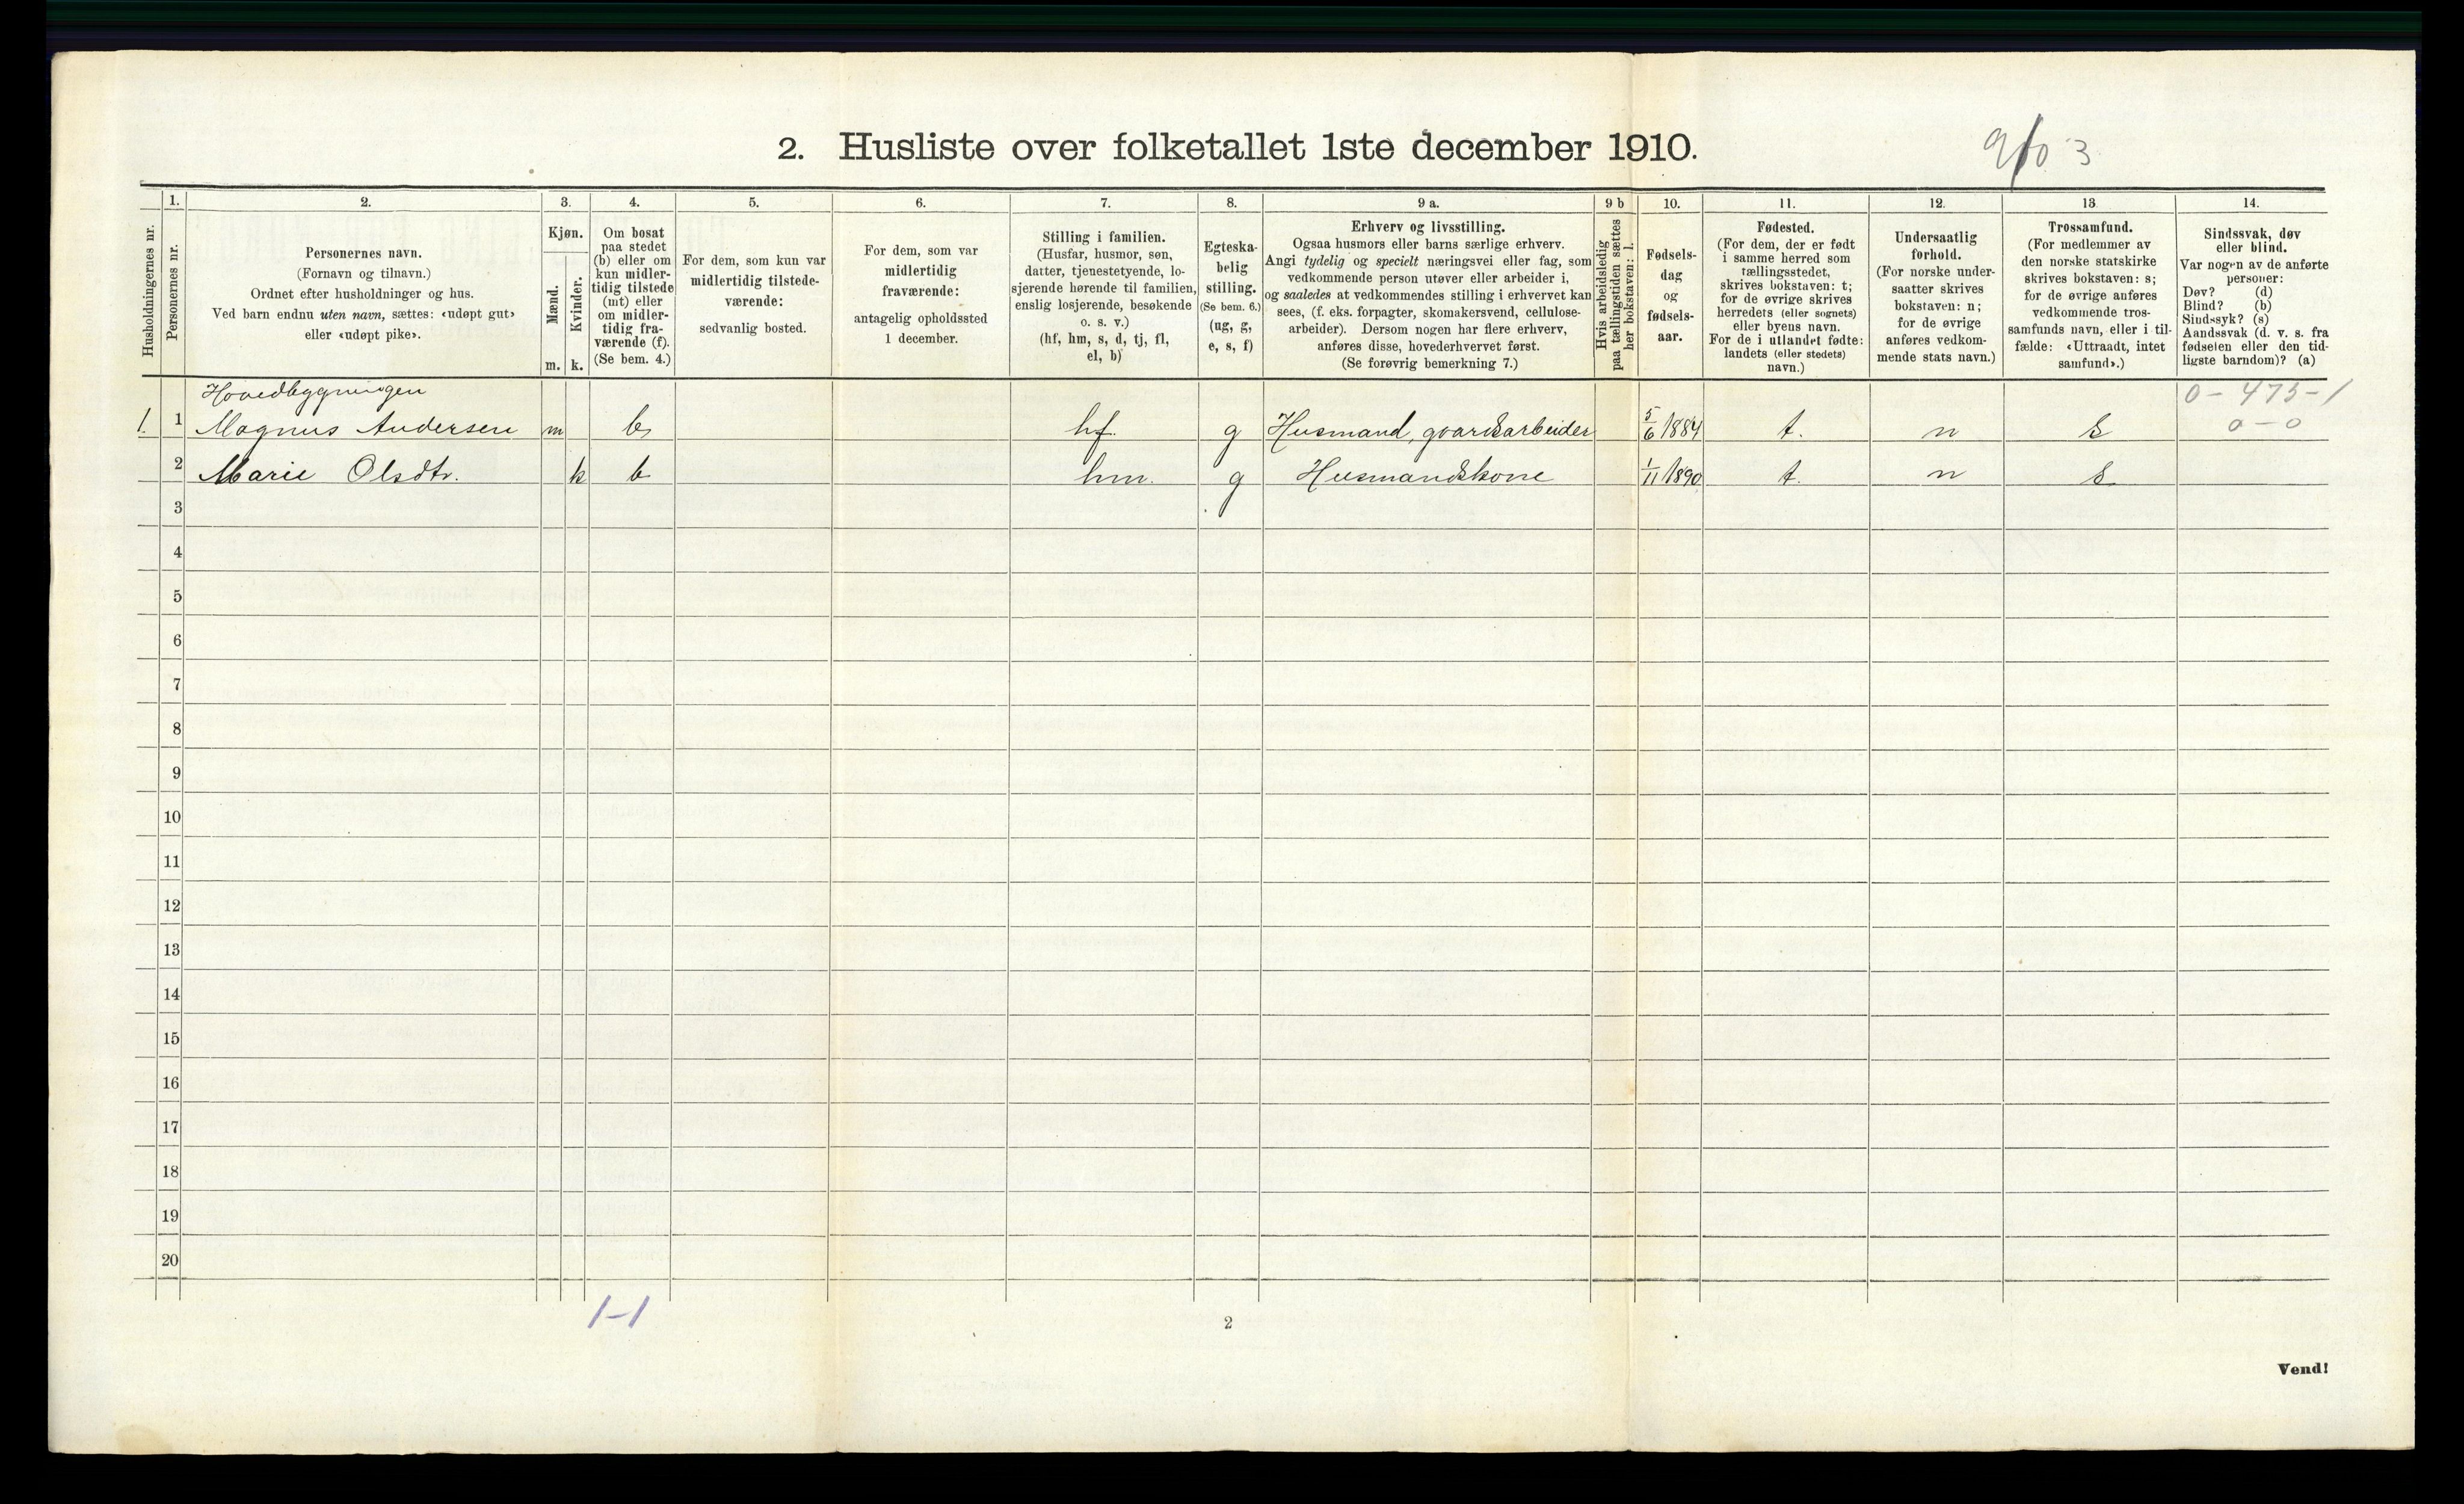 2. Husliste over folketallet 1ste december 1910.
Husholdningernes nr.
1.
Personernes nr.
2.
Personernes navn.
(Fornavn og tilnavn.)
Ordnet efter husholdninger og hus.
Ved barn endnu uten navn, sættes: «udøpt gut»
eller «udøpt pike».
3.
Kjøn.
Mænd.
Kvinder.
m.
k.
4.
Om bosat
paa stedet
(b) eller om
kun midler-
tidig tilstede
(mt) eller
om midler-
tidig fra-
værende (f).
(Se bem. 4.)
5.
For dem, som kun var
midlertidig tilstede-
værende:
sedvanlig bosted.
6.
For dem, som var
midlertidig
fraværende:
antagelig opholdssted
1 december.
7.
Stilling i familien.
(Husfar, husmor, søn,
datter, tjenestetyende, lo-
sjerende hørende til familien,
enslig losjerende, besøkende
o. s. v.)
(hf, hm, s, d, tj, fl,
el, b)
8.
Egteska-
belig
stilling.
(Se bem. 6.)
(ug, g,
e, s, f)
9 a.
Erhverv og livsstilling.
Ogsaa husmors eller barns særlige erhverv.
Angi tydelig og specielt næringsvei eller fag, som
vedkommende person utøver eller arbeider i,
og saaledes at vedkommendes stilling i erhvervet kan
sees, (f. eks. forpagter, skomakersvend, cellulose-
arbeider). Dersom nogen har flere erhverv,
anføres disse, hovederhvervet først.
(Se forøvrig bemerkning 7.)
9 b
Hvis arbeidsledig
paa tællingstiden sættes
her bokstaven: l.
10.
Fødsels-
dag
og
fødsels-
aar.
11.
Fødested.
(For dem, der er født
i samme herred som
tællingsstedet,
skrives bokstaven: t;
for de øvrige skrives
herredets (eller sognets)
eller byens navn.
For de i utlandet fødte:
landets (eller stedets)
navn.)
12.
Undersaatlig
forhold.
(For norske under-
saatter skrives
bokstaven: n;
for de øvrige
anføres vedkom-
mende stats navn.)
13
Trossamfund.
(For medlemmer av
den norske statskirke
skrives bokstaven: s;
for de øvrige anføres
vedkommende tros-
samfunds navn, eller i til-
fælde: «Uttraadt, intet
samfund».)
14.
Sindssvak, døv
eller blind.
Var nogen av de anførte
personer:
Døv? (d)
Blind? (b)
Sindssyk? (s)
Aandssvak (d. v. s. fra
fødselen eller den tid-
ligste barndom)? (a)
Hovedbygningen
0 - 475 - 1
0 - 0
1. 1 Magnus Andersen m b hf. g Husmand, gaardsarbeider 5/6 1884 t. n s
2 Marie Olsdtr. k b hm. g Husmandskone 1/11 1890 t. n s
3
4
5
6
7
8
9
10
11
12
13
14
15
16
17
18
19
20
1-1
2
Vend!